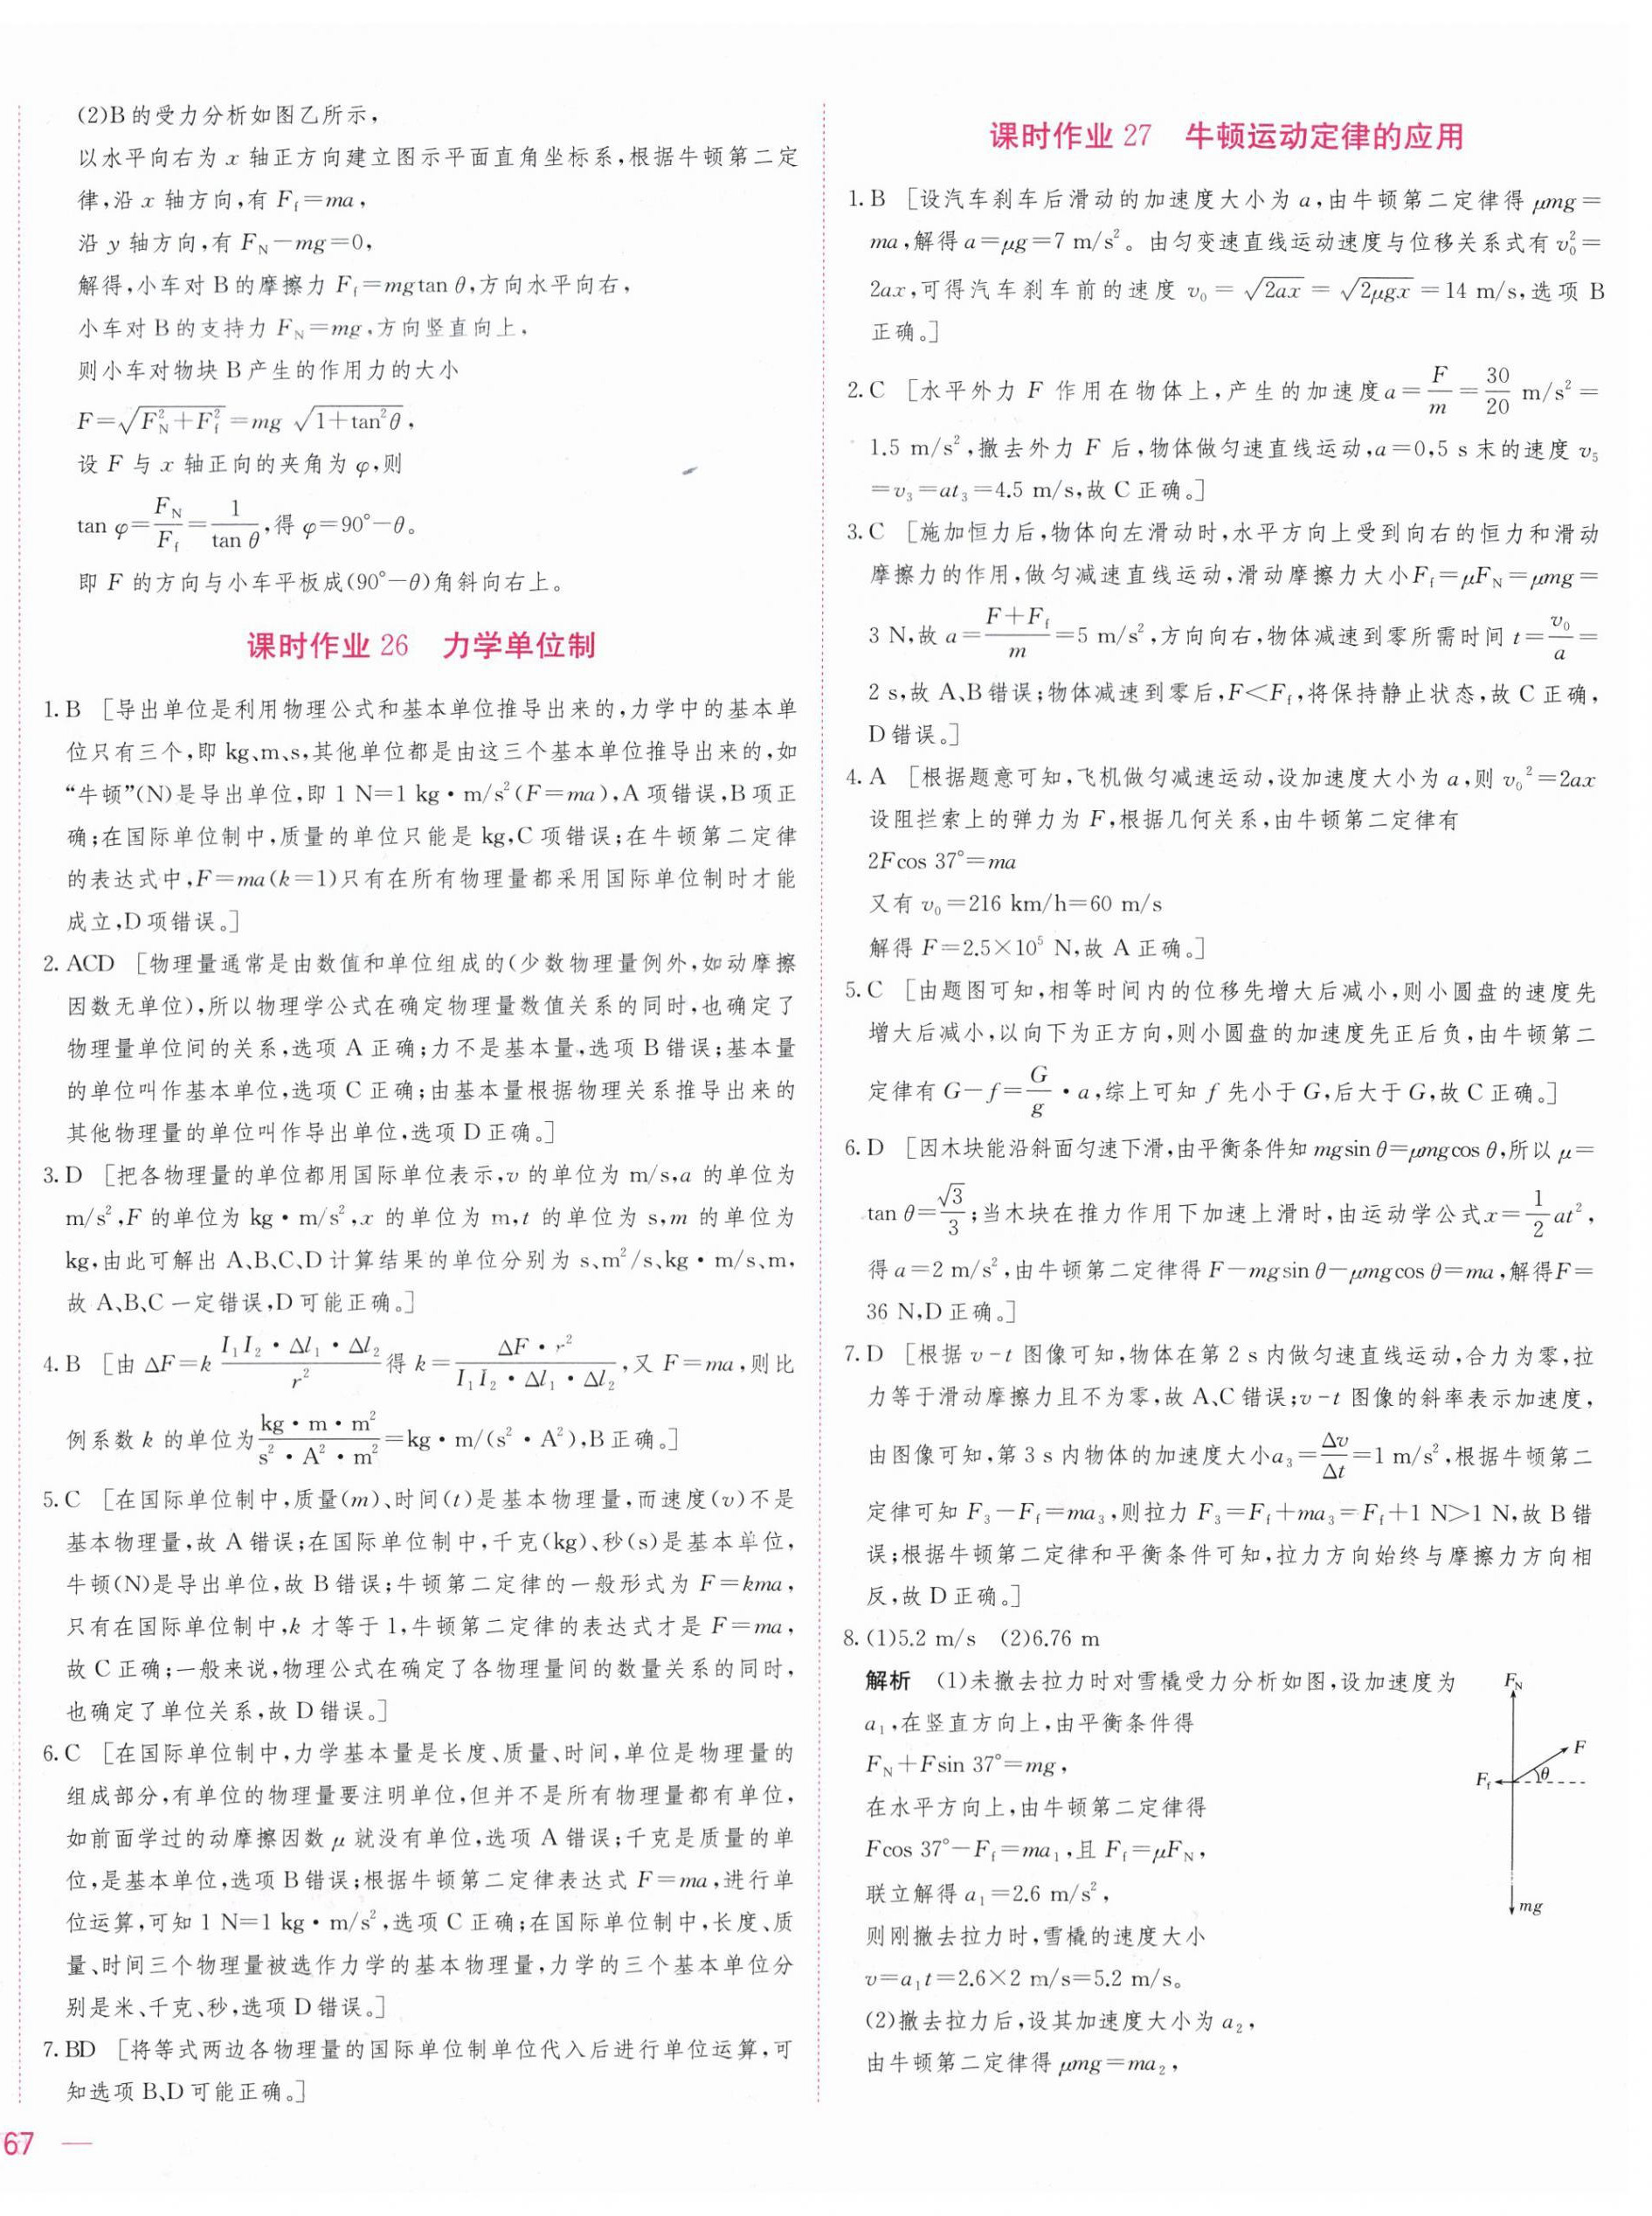 (2)B的受力分析如图乙所示,
以水平向右为 x 轴正方向建立图示平面直角坐标系,根据牛顿第二定
律,沿 x 轴方向,有 Ff=ma,
沿 y 轴方向,有 FN−mg=0,
解得,小车对 B 的摩擦力 Ff=mgtan θ,方向水平向右,
小车对 B 的支持力 FN=mg,方向竖直向上,
则小车对物块 B 产生的作用力的大小
F=√(FN²+Ff²)=mg √(1+tan²θ),
设 F 与 x 轴正向的夹角为 φ,则
tan φ=FN/Ff=1/tan θ,得 φ=90°−θ。
即 F 的方向与小车平板成(90°−θ)角斜向右上。
课时作业 26 力学单位制
1. B [导出单位是利用物理公式和基本单位推导出来的,力学中的基本单
位只有三个,即 kg、m、s,其他单位都是由这三个基本单位推导出来的,如
“牛顿”(N)是导出单位,即 1 N=1 kg·m/s²(F=ma),A 项错误,B 项正
确;在国际单位制中,质量的单位只能是 kg,C 项错误;在牛顿第二定律
的表达式中,F=ma(k=1)只有在所有物理量都采用国际单位制时才能
成立,D 项错误。]
2. ACD [物理量通常是由数值和单位组成的(少数物理量例外,如动摩擦
因数无单位),所以物理学公式在确定物理量数值关系的同时,也确定了
物理量单位间的关系,选项 A 正确;力不是基本量,选项 B 错误;基本量
的单位叫作基本单位,选项 C 正确;由基本量根据物理关系推导出来的
其他物理量的单位叫作导出单位,选项 D 正确。]
3. D [把各物理量的单位都用国际单位表示,v 的单位为 m/s,a 的单位为
m/s²,F 的单位为 kg·m/s²,x 的单位为 m,t 的单位为 s,m 的单位为
kg,由此可解出 A、B、C、D 计算结果的单位分别为 s、m²/s、kg·m/s、m,
故 A、B、C 一定错误,D 可能正确。]
4. B [由 ΔF=k I₁I₂·Δl₁·Δl₂/r² 得 k=ΔF·r²/(I₁I₂·Δl₁·Δl₂),又 F=ma,则比
例系数 k 的单位为 kg·m·m²/(s²·A²·m²)=kg·m/(s²·A²),B 正确。]
5. C [在国际单位制中,质量(m)、时间(t)是基本物理量,而速度(v)不是
基本物理量,故 A 错误;在国际单位制中,千克(kg)、秒(s)是基本单位,
牛顿(N)是导出单位,故 B 错误;牛顿第二定律的一般形式为 F=kma,
只有在国际单位制中,k 才等于 1,牛顿第二定律的表达式才是 F=ma,
故 C 正确;一般来说,物理公式在确定了各物理量间的数量关系的同时,
也确定了单位关系,故 D 错误。]
6. C [在国际单位制中,力学基本量是长度、质量、时间,单位是物理量的
组成部分,有单位的物理量要注明单位,但并不是所有物理量都有单位,
如前面学过的动摩擦因数 μ 就没有单位,选项 A 错误;千克是质量的单
位,是基本单位,选项 B 错误;根据牛顿第二定律表达式 F=ma,进行单
位运算,可知 1 N=1 kg·m/s²,选项 C 正确;在国际单位制中,长度、质
量、时间三个物理量被选作力学的基本物理量,力学的三个基本单位分
别是米、千克、秒,选项 D 错误。]
7. BD [将等式两边各物理量的国际单位制单位代入后进行单位运算,可
知选项 B、D 可能正确。]
67
课时作业 27 牛顿运动定律的应用
1. B [设汽车刹车后滑动的加速度大小为 a,由牛顿第二定律得 μmg=
ma,解得 a=μg=7 m/s²。由匀变速直线运动速度与位移关系式有 v₀²=
2ax,可得汽车刹车前的速度 v₀=√(2ax)=√(2μgx)=14 m/s,选项 B
正确。]
2. C [水平外力 F 作用在物体上,产生的加速度 a=F/m=30/20 m/s²=
1.5 m/s²,撤去外力 F 后,物体做匀速直线运动,a=0,5 s 末的速度 v₅
=v₃=at₃=4.5 m/s,故 C 正确。]
3. C [施加恒力后,物体向左滑动时,水平方向上受到向右的恒力和滑动
摩擦力的作用,做匀减速直线运动,滑动摩擦力大小 Ff=μFN=μmg=
3 N,故 a=(F+Ff)/m=5 m/s²,方向向右,物体减速到零所需时间 t=v₀/a=
2 s,故 A、B 错误;物体减速到零后,F<Ff,将保持静止状态,故 C 正确,
D 错误。]
4. A [根据题意可知,飞机做匀减速运动,设加速度大小为 a,则 v₀²=2ax
设阻拦索上的弹力为 F,根据几何关系,由牛顿第二定律有
2Fcos 37°=ma
又有 v₀=216 km/h=60 m/s
解得 F=2.5×10⁵ N,故 A 正确。]
5. C [由题图可知,相等时间内的位移先增大后减小,则小圆盘的速度先
增大后减小,以向下为正方向,则小圆盘的加速度先正后负,由牛顿第二
定律有 G−f=G/g·a,综上可知 f 先小于 G,后大于 G,故 C 正确。]
6. D [因木块能沿斜面匀速下滑,由平衡条件知 mgsin θ=μmgcos θ,所以 μ=
tan θ=√3/3;当木块在推力作用下加速上滑时,由运动学公式 x=1/2 at²,
得 a=2 m/s²,由牛顿第二定律得 F−mgsin θ−μmgcos θ=ma,解得F=
36 N,D 正确。]
7. D [根据 v-t 图像可知,物体在第 2 s 内做匀速直线运动,合力为零,拉
力等于滑动摩擦力且不为零,故 A、C 错误;v-t 图像的斜率表示加速度,
由图像可知,第 3 s 内物体的加速度大小a₃=Δv/Δt=1 m/s²,根据牛顿第二
定律可知 F₃−Ff=ma₃,则拉力 F₃=Ff+ma₃=Ff+1 N>1 N,故 B 错
误;根据牛顿第二定律和平衡条件可知,拉力方向始终与摩擦力方向相
反,故 D 正确。]
8. (1)5.2 m/s (2)6.76 m
解析 (1)未撤去拉力时对雪橇受力分析如图,设加速度为
a₁,在竖直方向上,由平衡条件得
FN+Fsin 37°=mg,
在水平方向上,由牛顿第二定律得
Fcos 37°−Ff=ma₁,且 Ff=μFN,
联立解得 a₁=2.6 m/s²,
则刚撤去拉力时,雪橇的速度大小
v=a₁t=2.6×2 m/s=5.2 m/s。
(2)撤去拉力后,设其加速度大小为 a₂,
由牛顿第二定律得 μmg=ma₂,
FN
F
Ff
θ
mg